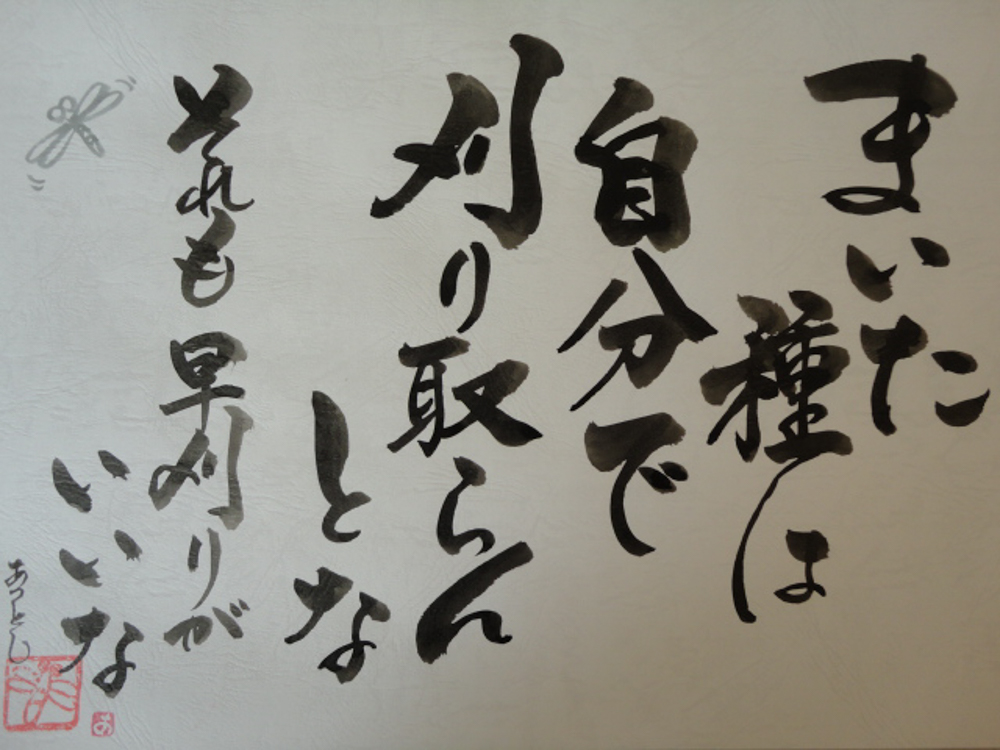 まいた
種は
自分で
刈り取らん
とな
それも早刈りが
いいな
あつとし
あ